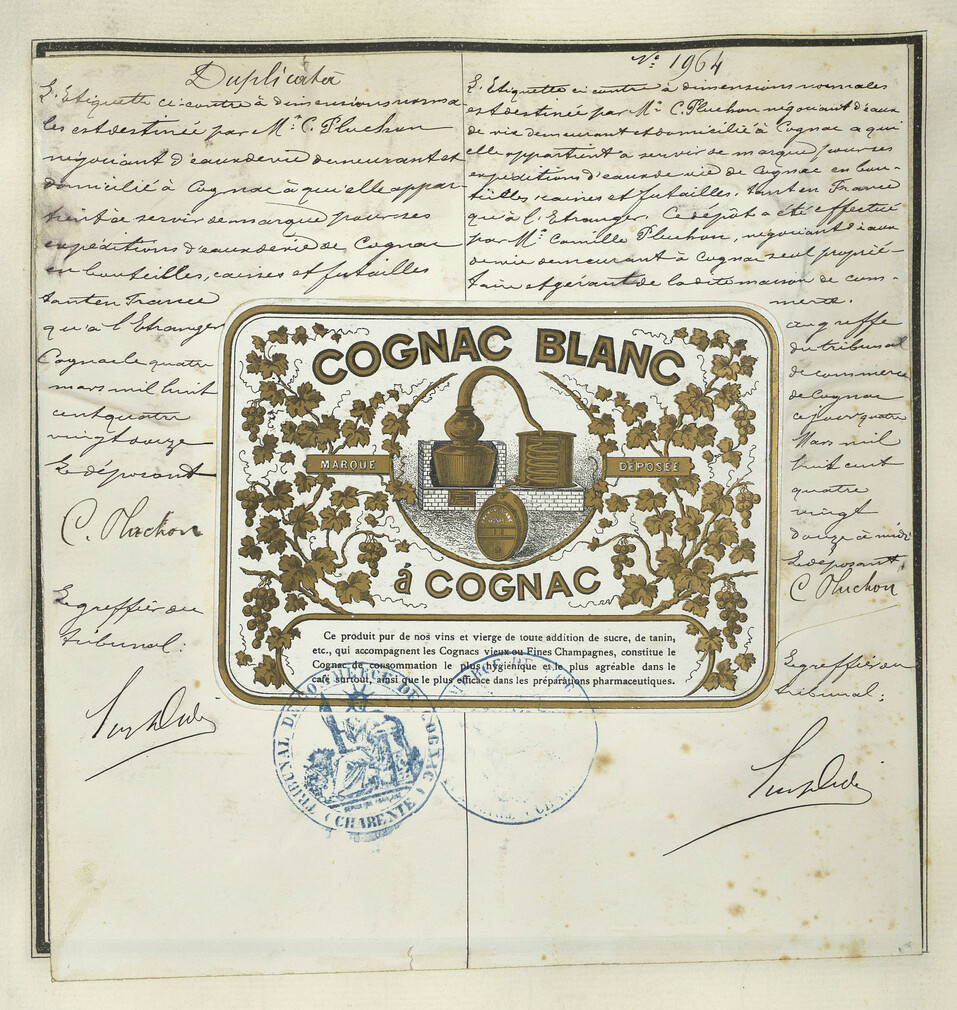 Duplicata
L'Etiquette ci-contre à dimensions norma-
les est destinée par Mr. C. Pluchon
négociant d'eaux de vie demeurant et
domicilié à Cognac à qui elle appar-
tient à servir de marque pour ses
expéditions d'eaux de vie de Cognac
en bouteilles, caisses et futailles
tant en France
qu'à l'Etranger
Cognac le quatre
mars mil huit
cent quatre
vingt douze
Le déposant
C. Pluchon
Le greffier du
tribunal:
No. 1964
L'Etiquette ci contre à dimensions normales
est destinée par Mr. C. Pluchon négociant d'eaux
de vie demeurant et domicilié à Cognac a qui
elle appartient a servir de marque pour ses
expéditions d'eaux de vie de Cognac en bou-
teilles, caisses et futailles, tant en France
qu'à l'Etranger. Ce dépôt a été effectué
par Mr. Camille Pluchon, négociant d'eaux
de vie demeurant à Cognac seul proprié-
taire et gérant de la dite maison de com-
merce.
au greffe
du tribunal
de commerce
de Cognac
ce jour quatre
Mars mil
huit cent
quatre
vingt
douze à midi
Le déposant,
C Pluchon
Le greffier du
tribunal:
COGNAC BLANC
MARQUE DÉPOSÉE
à COGNAC
Ce produit pur de nos vins et vierge de toute addition de sucre, de tanin,
etc., qui accompagnent les Cognacs vieux ou Fines Champagnes, constitue le
Cognac de consommation le plus hygiénique et le plus agréable dans le
café surtout, ainsi que le plus efficace dans les préparations pharmaceutiques.
TRIBUNAL DE COMMERCE DE COGNAC
(CHARENTE)